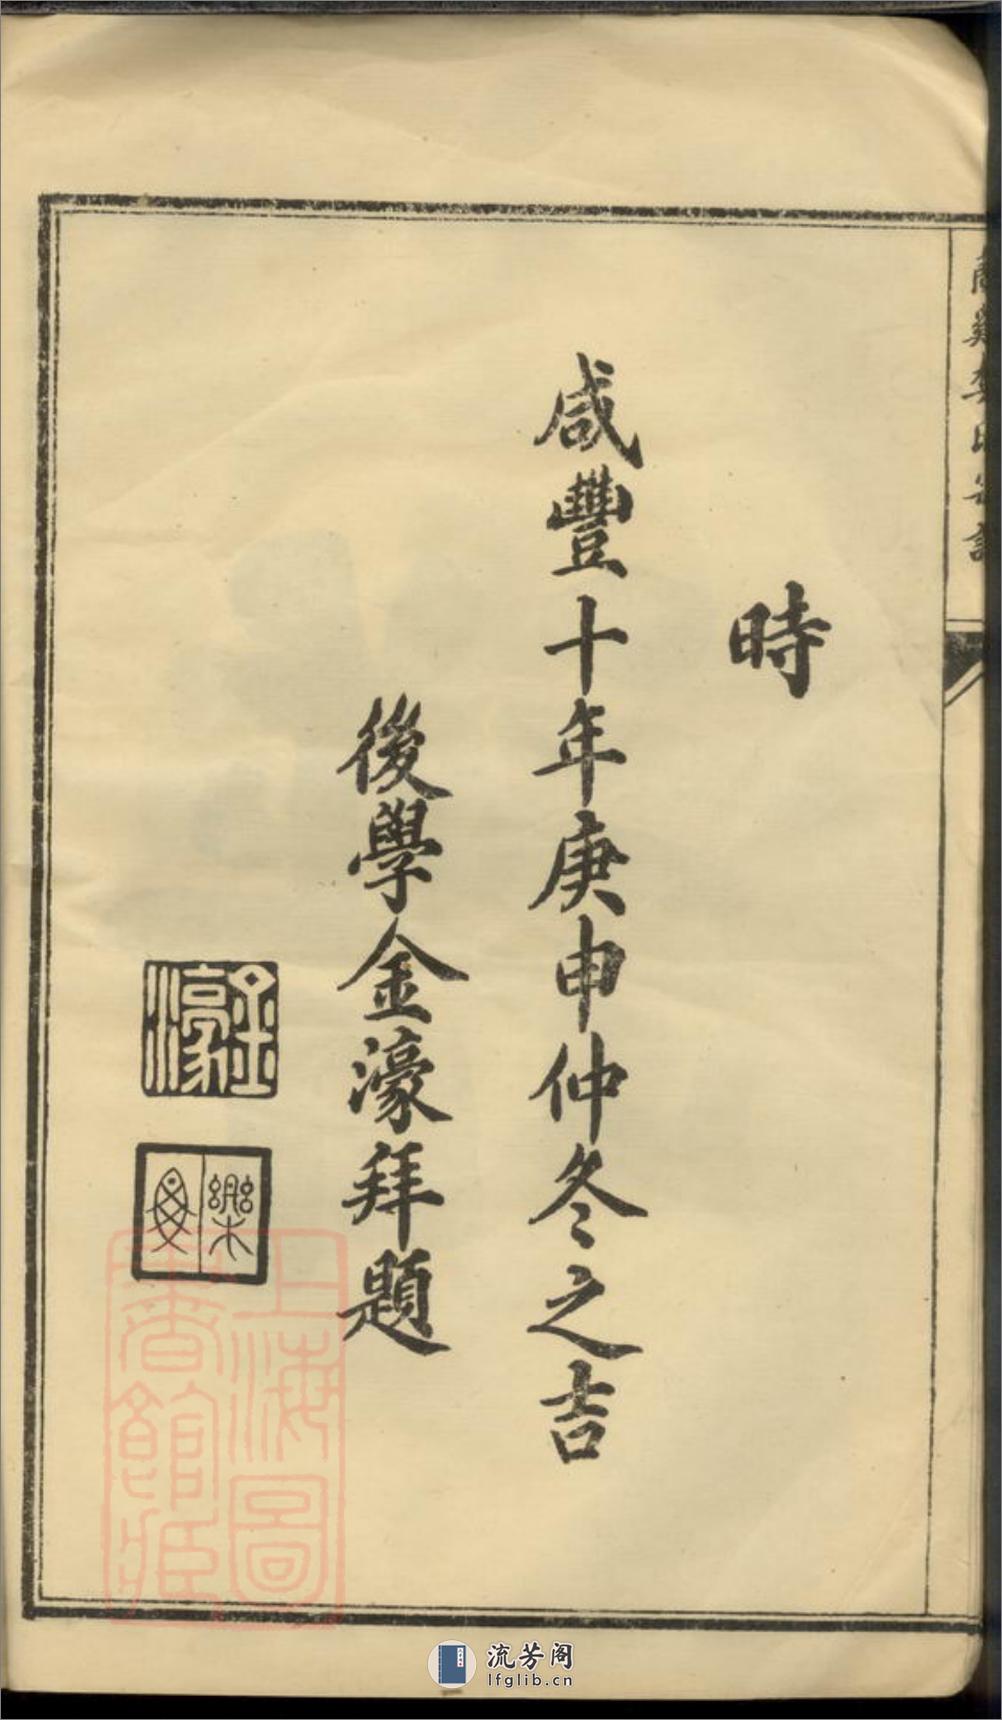 時
咸豐十年庚申仲冬之吉
後學金濠拜題
金濠
上海圖書館藏
流芳阁
lfglib.cn